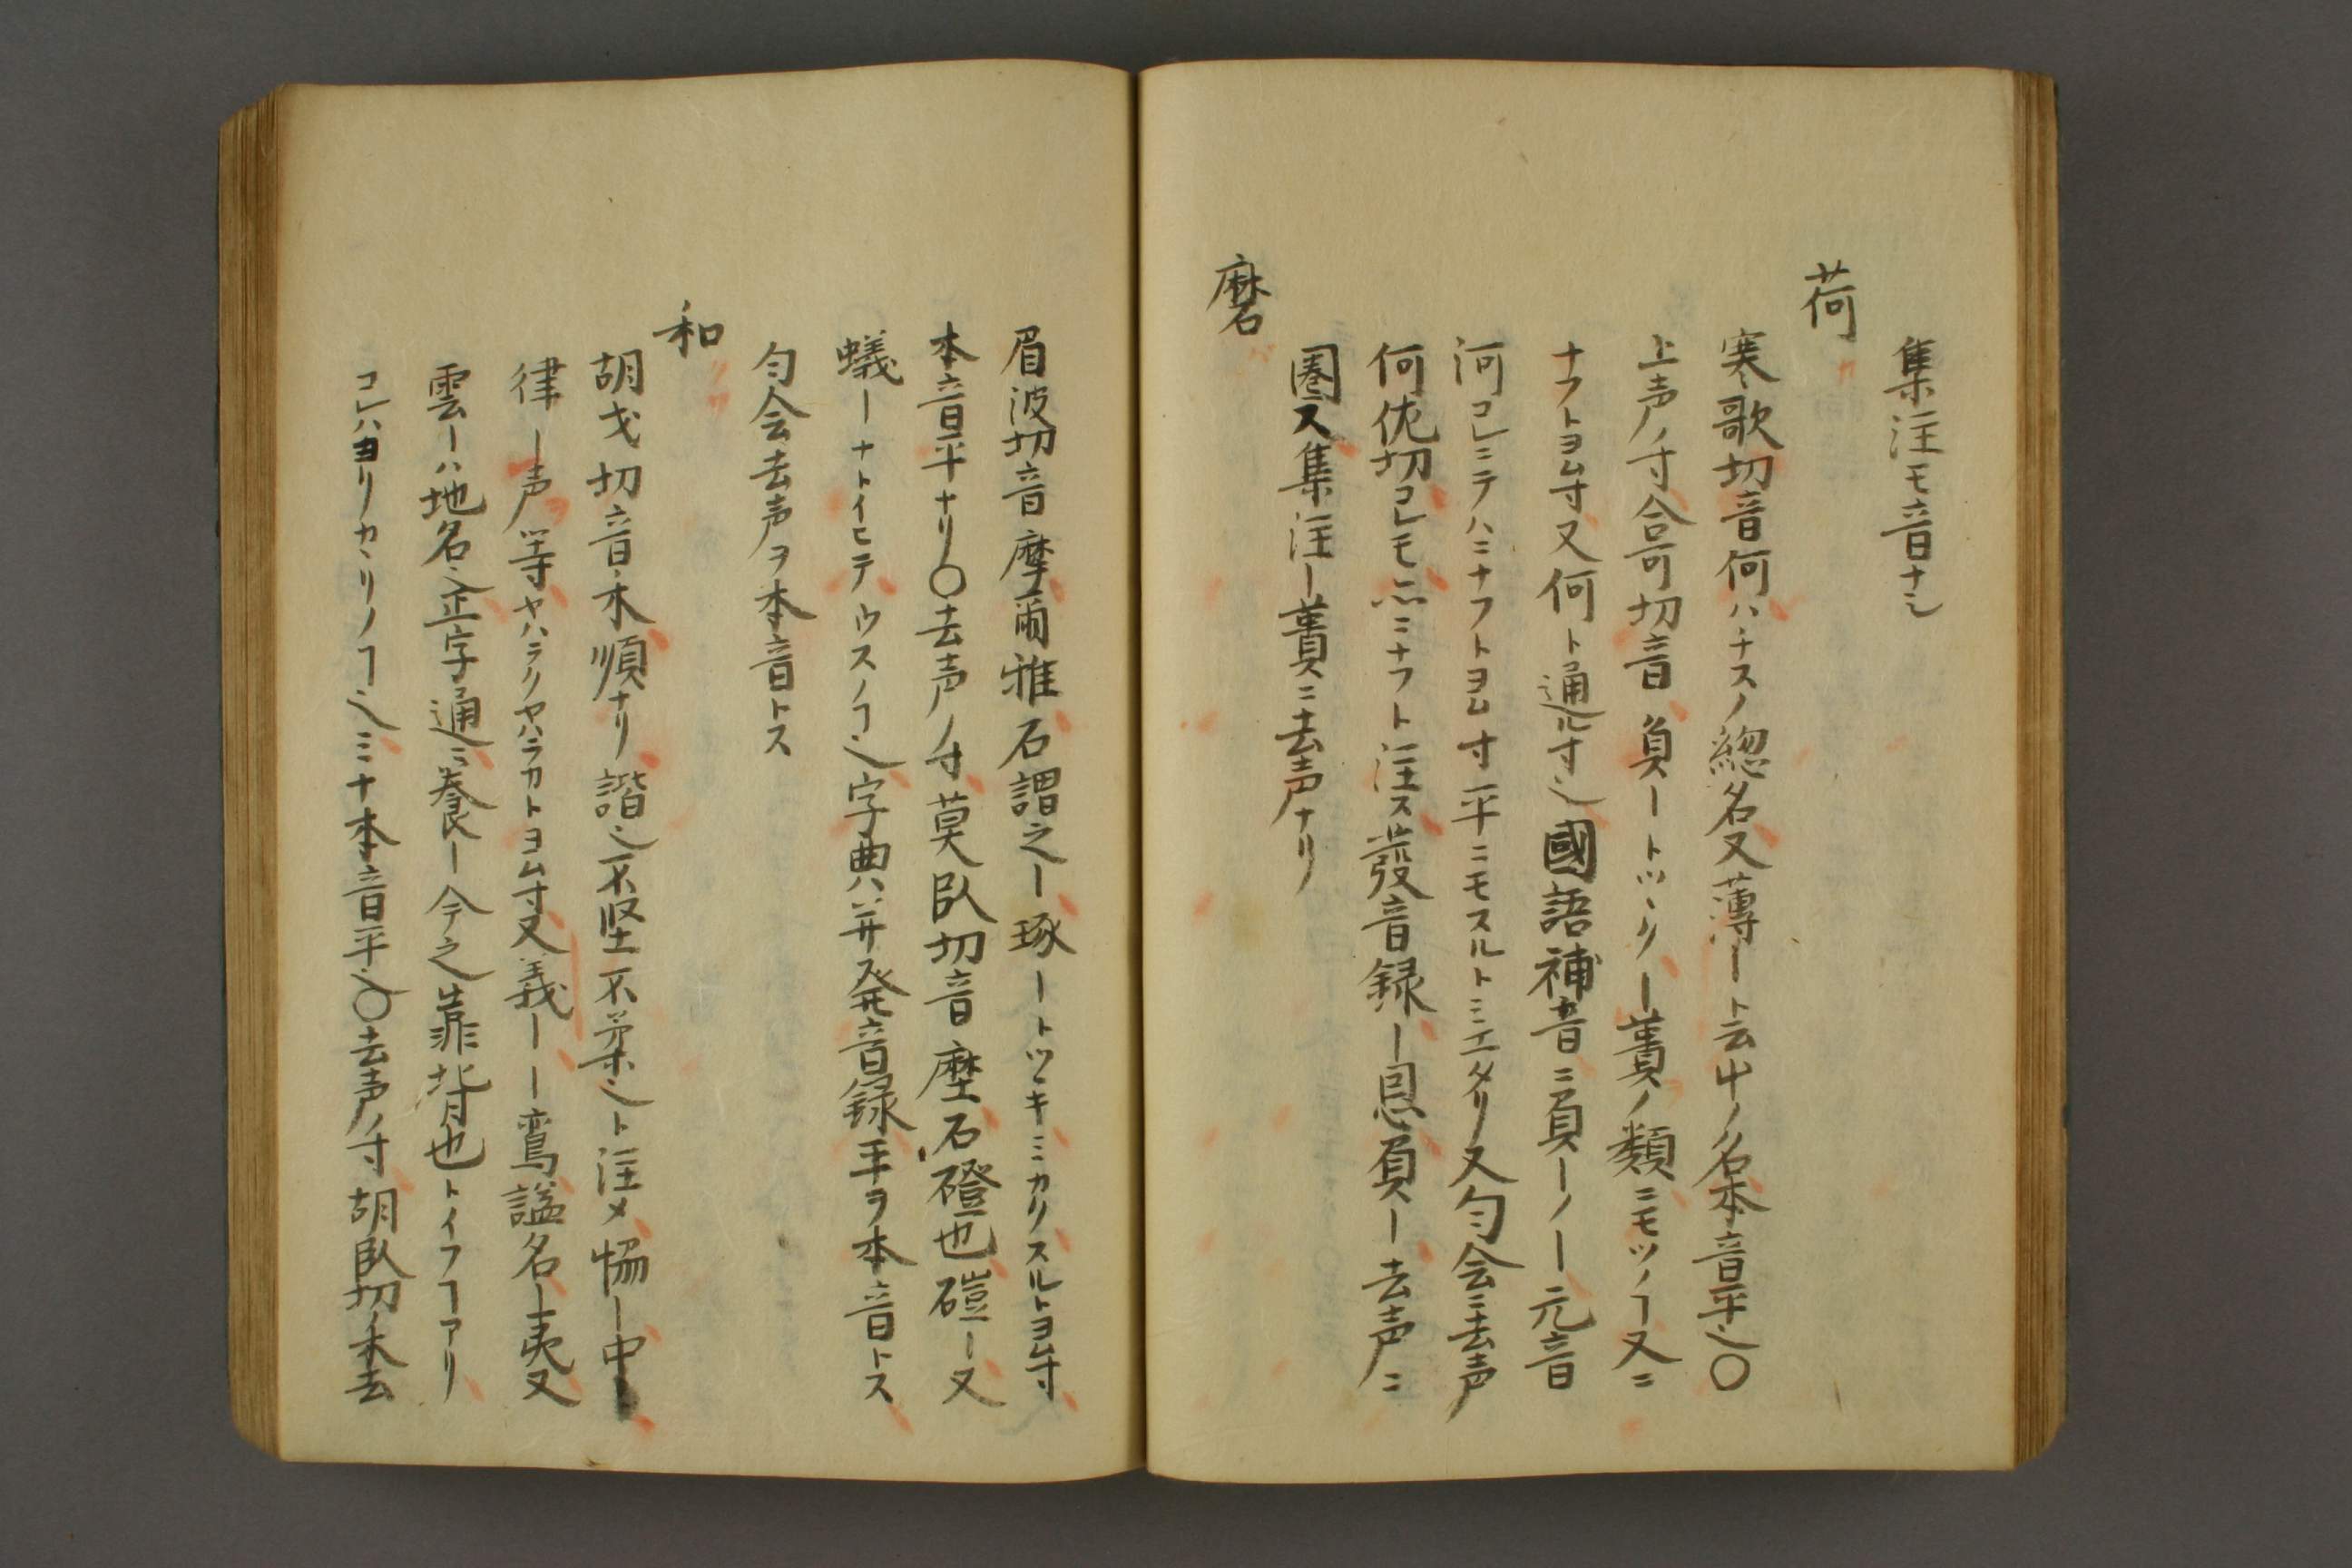 集注モ音ナシ
荷
寒歌切音何ハチスノ総名又薄ート云中ノ名本音平也〇
上声ノ寸合可切音負ートツヽクー蕢ノ類ニモツノヿ又ニ
ナフトヨム寸又何ト通ル寸也國語補音ニ負ーノー元音
河コレニテハニナフトヨム寸平ニモスルトミエタリ又匀会ニ去声
何佐切コレモニナフト注ス發音録ー恩負ー去声ニ
圏ス集注ー蕢ニ去声ナリ
磨
眉波切音摩爾雅石謂之ー琢ートツヽキミカクスルトヨム寸
本音平ナリ〇去声ノ寸莫臥切音塺石磑也磑ー又
蟻ーナトイヒテウスノヿ也字典ハ并発音録平ヲ本音トス
匀会去声ヲ本音トス
和
胡戈切音禾順ナリ諧也不堅不柔也ト注メ恊ー中ー
律ー声等ヤハラクヤハラカトヨム寸又義ーー鸞諡名ー夷又
雲ーハ地名也正字通ニ養ー今之靠背也トイフヿアリ
コレハヨリカヽリノヿ也ミナ本音平也〇去声ノ寸胡臥切禾去